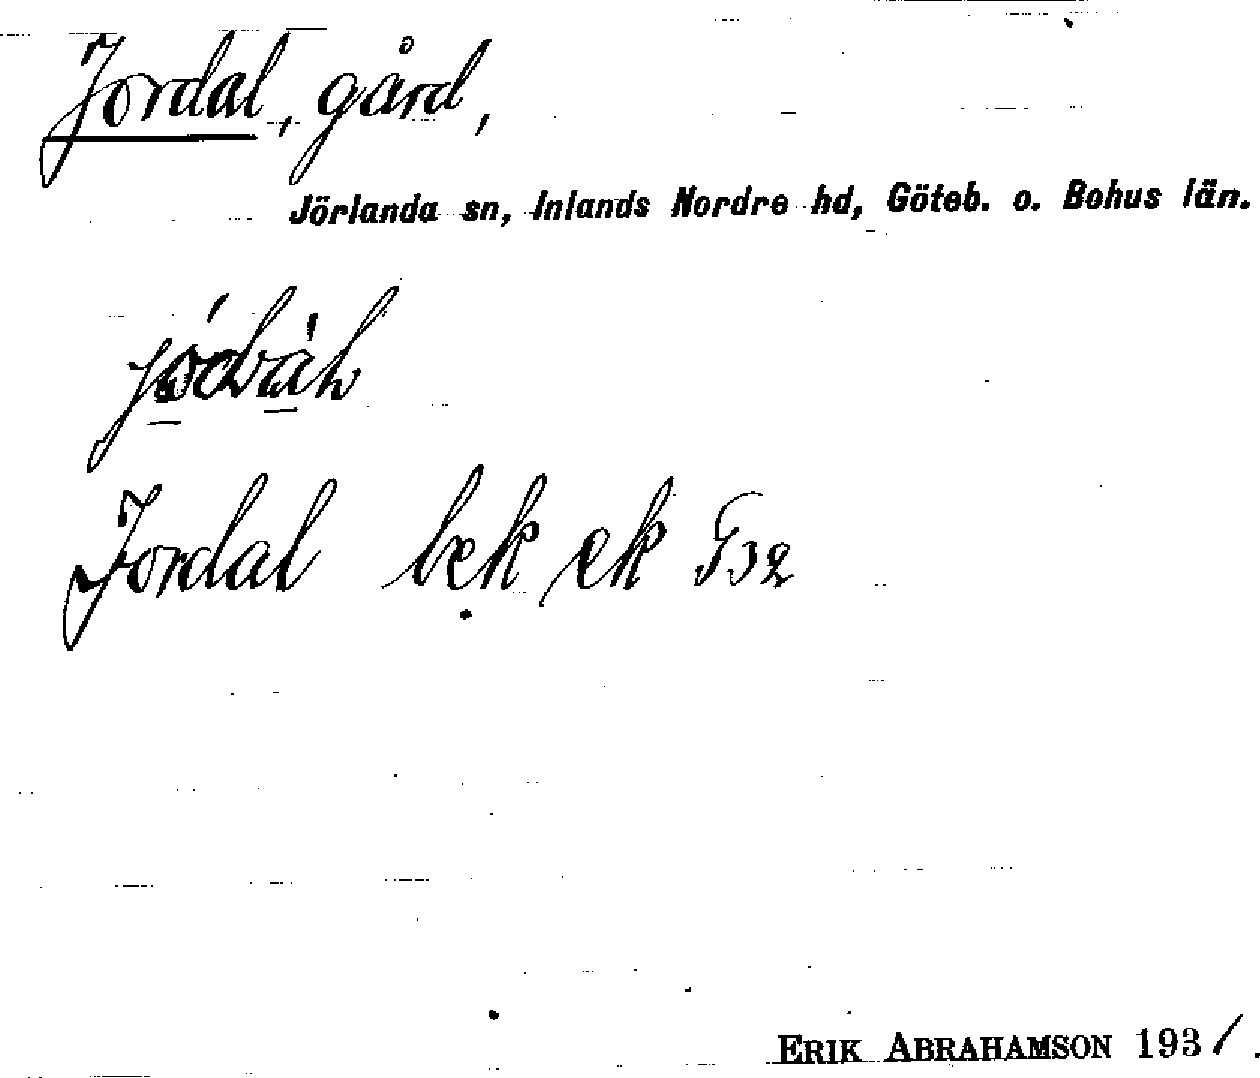 Jordal, gård,
Jörlanda sn, Inlands Nordre hd, Göteb. o. Bohus län.
Jordal bek ek G32
ERIK ABRAHAMSON 1931.